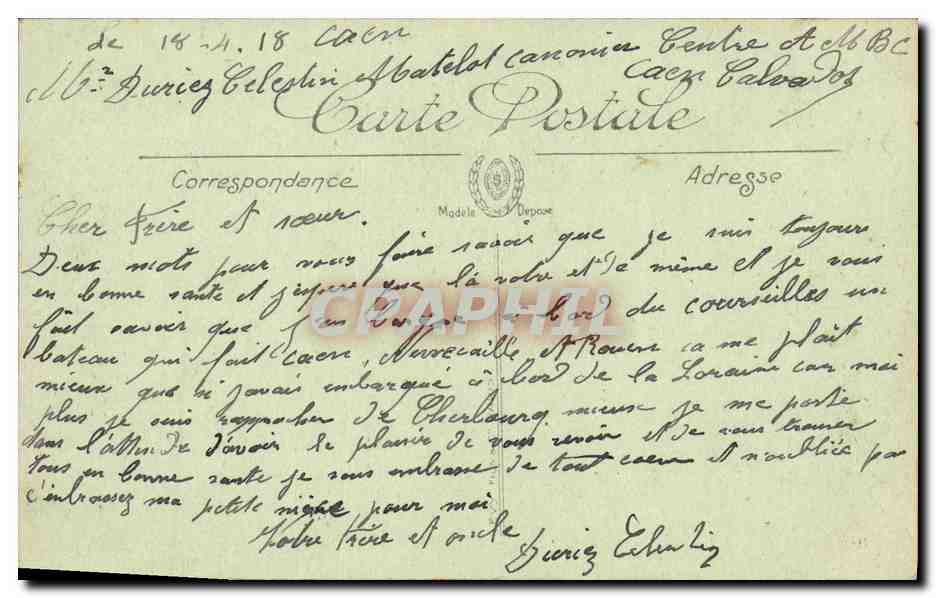 de 18-4.18 Caen
Mr Duriez Celestin Matelot canonier Centre A M B C
Caen Calvados
Carte Postale
Correspondance
Adresse
Modèle Déposé
Cher Frère et sœur.
Deux mots pour vous faire savoir que je suis toujours
en bonne sante et j'espere que la votre est de même et je vous
fait savoir que j'en barque a bord du courseilles un
bateau qui fait Caen, et Rouen ca me plait
mieux que si javais embarqué a bord de la Loraine car moi
plus je suis rapprocher de Cherbourg mieux je me porte
dans l'attende d'avoir le plaisir de vous revoir et de vous trouver
tous en bonne sante je vous embrasse de tout coeur et n'oubliée pas
d'embrassez ma petite nièce pour moi
Votre frère et oncle
Duriez Celestin
CRAPHIL